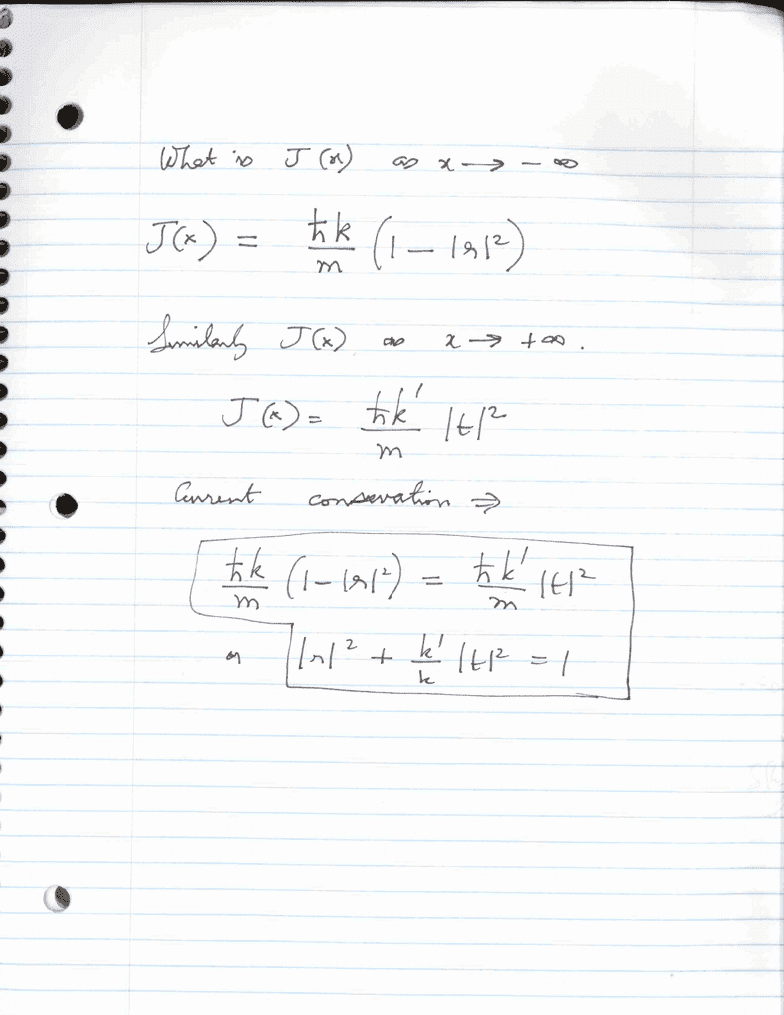 What is J(x) as x → - ∞
J(x) = ħk/m (1 - |r|²)
Similarly J(x) as x → +∞.
J(x) = ħk'/m |t|²
Current conservation ⇒
ħk/m (1-|r|²) = ħk'/m |t|²
or |r|² + k'/k |t|² = 1